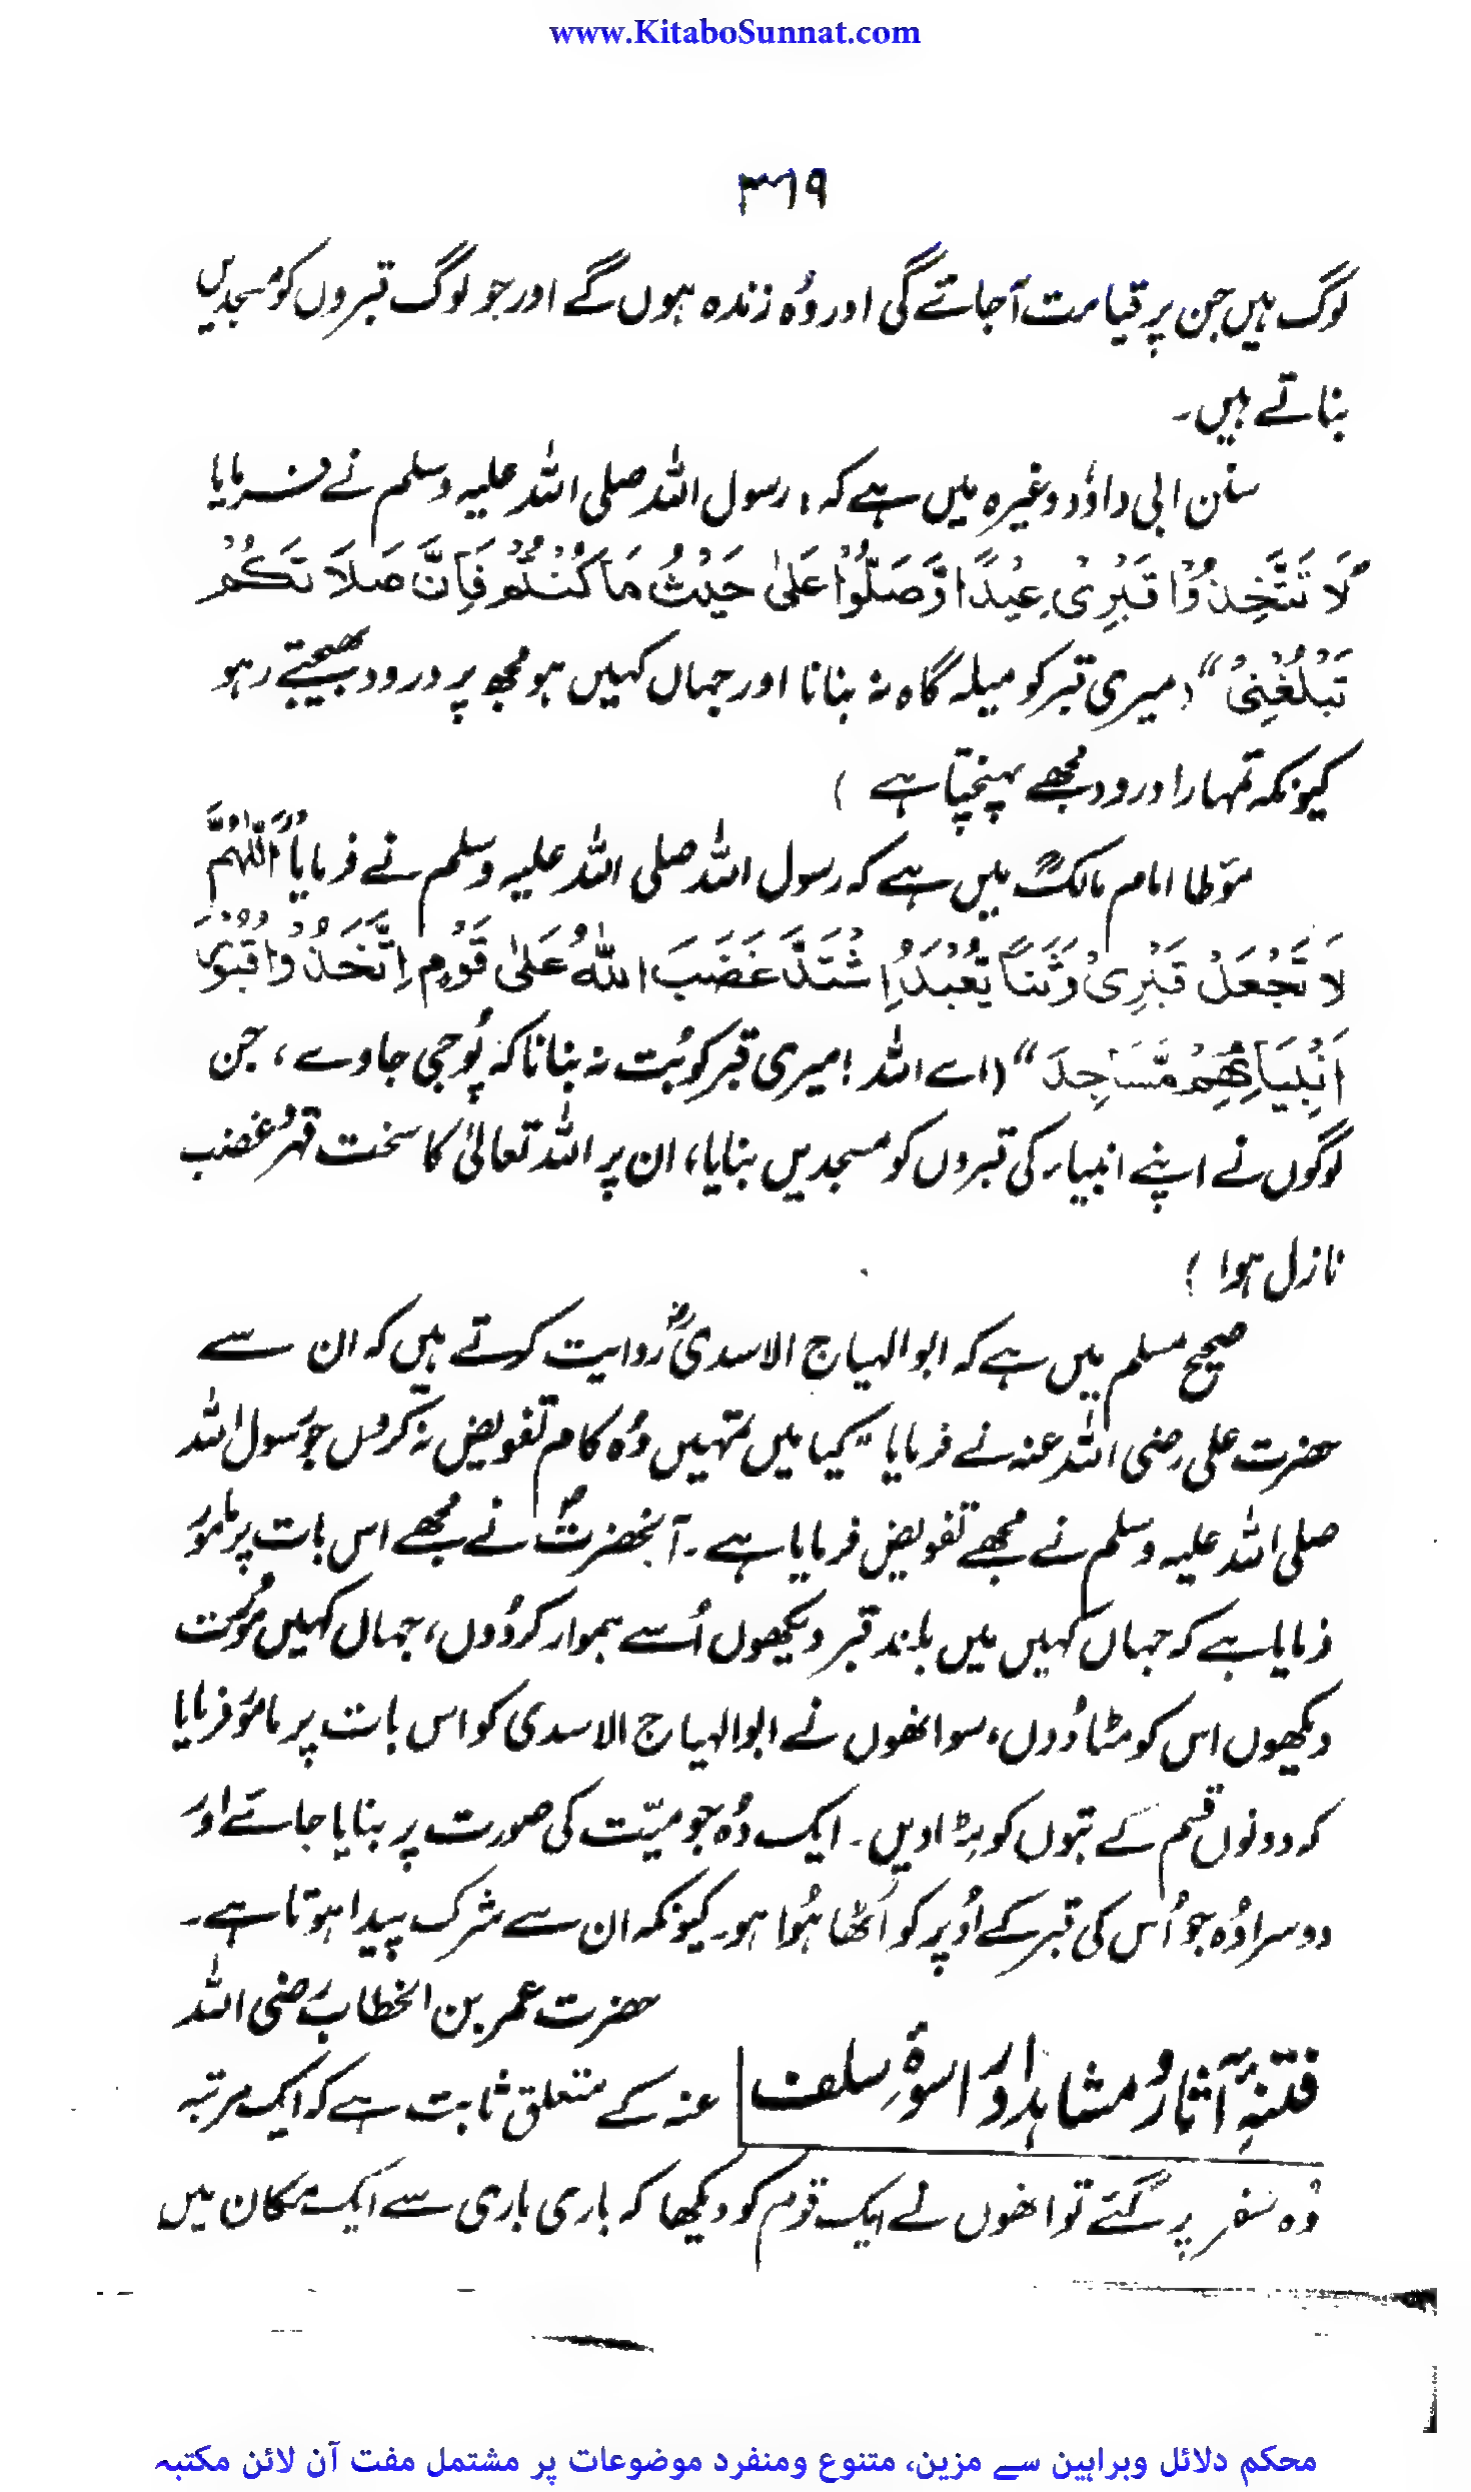 www.KitaboSunnat.com
۳۶۹
لوگ ہیں جن پر قیامت آجائے گی اور وُہ زندہ ہوں گے اور جو لوگ قبروں کو مسجدیں
بناتے ہیں۔
سنن ابی داؤد وغیرہ میں ہے کہ: رسول اللہ صلی اللہ علیہ وسلم نے فرمایا
"لَا تَتَّخِذُوْا قَبْرِیْ عِیْدًا وَّصَلُّوْا عَلَیَّ حَیْثُ مَا کُنْتُمْ فَاِنَّ صَلَاتَکُمْ
تَبْلُغُنِیْ" (میری قبر کو میلہ گاہ نہ بنانا اور جہاں کہیں ہو مجھ پر درود بھیجتے رہو
کیونکہ تمہارا درود مجھے پہنچتا ہے)
مؤطا امام مالکؒ میں ہے کہ رسول اللہ صلی اللہ علیہ وسلم نے فرمایا "اَللّٰہُمَّ
لَا تَجْعَلْ قَبْرِیْ وَثَنًا یُّعْبَدُ اِشْتَدَّ غَضَبَ اللّٰہُ عَلٰی قَوْمٍ اِتَّخَذُوْا قُبُوْرَ
اَنْبِیَاءِھِمْ مَّسَاجِدَ" (اے اللہ! میری قبر کو بُت نہ بنانا کہ پُوجی جاوے، جن
لوگوں نے اپنے انبیاء کی قبروں کو مسجدیں بنایا، ان پر اللہ تعالیٰ کا سخت قہر و غضب
نازل ہوا)
صحیح مسلم میں ہے کہ ابوالہیاج الاسدیؓ روایت کرتے ہیں کہ ان سے
حضرت علی رضی اللہ عنہ نے فرمایا "کیا میں تمہیں وُہ کام تفویض نہ کروں جو رسول اللہ
صلی اللہ علیہ وسلم نے مجھے تفویض فرمایا ہے۔ آنحضرتؐ نے مجھے اس بات پر مامور
فرمایا ہے کہ جہاں کہیں میں بلند قبر دیکھوں اُسے ہموار کر دُوں، جہاں کہیں مُورت
دیکھوں اس کو مٹا دُوں، سو انھوں نے ابوالہیاج الاسدی کو اس بات پر مامور فرمایا
کہ دونوں قسم کے بتوں کو ہٹا دیں۔ ایک وُہ جو میّت کی صورت پر بنایا جائے اور
دوسرا وُہ جو اُس کی قبر کے اُوپر کو اُٹھا ہُوا ہو۔ کیونکہ ان سے شرک پیدا ہوتا ہے۔
حضرت عمر بن الخطاب رضی اللہ
فتنۂ آثار و مشاہد اور اسوۂ سلف
عنہ کے متعلق ثابت ہے کہ ایک مرتبہ
وُہ سفر پر گئے تو انھوں نے ایک قوم کو دیکھا کہ باری باری سے ایک مکان میں
محکم دلائل وبراہین سے مزین، متنوع ومنفرد موضوعات پر مشتمل مفت آن لائن مکتبہ